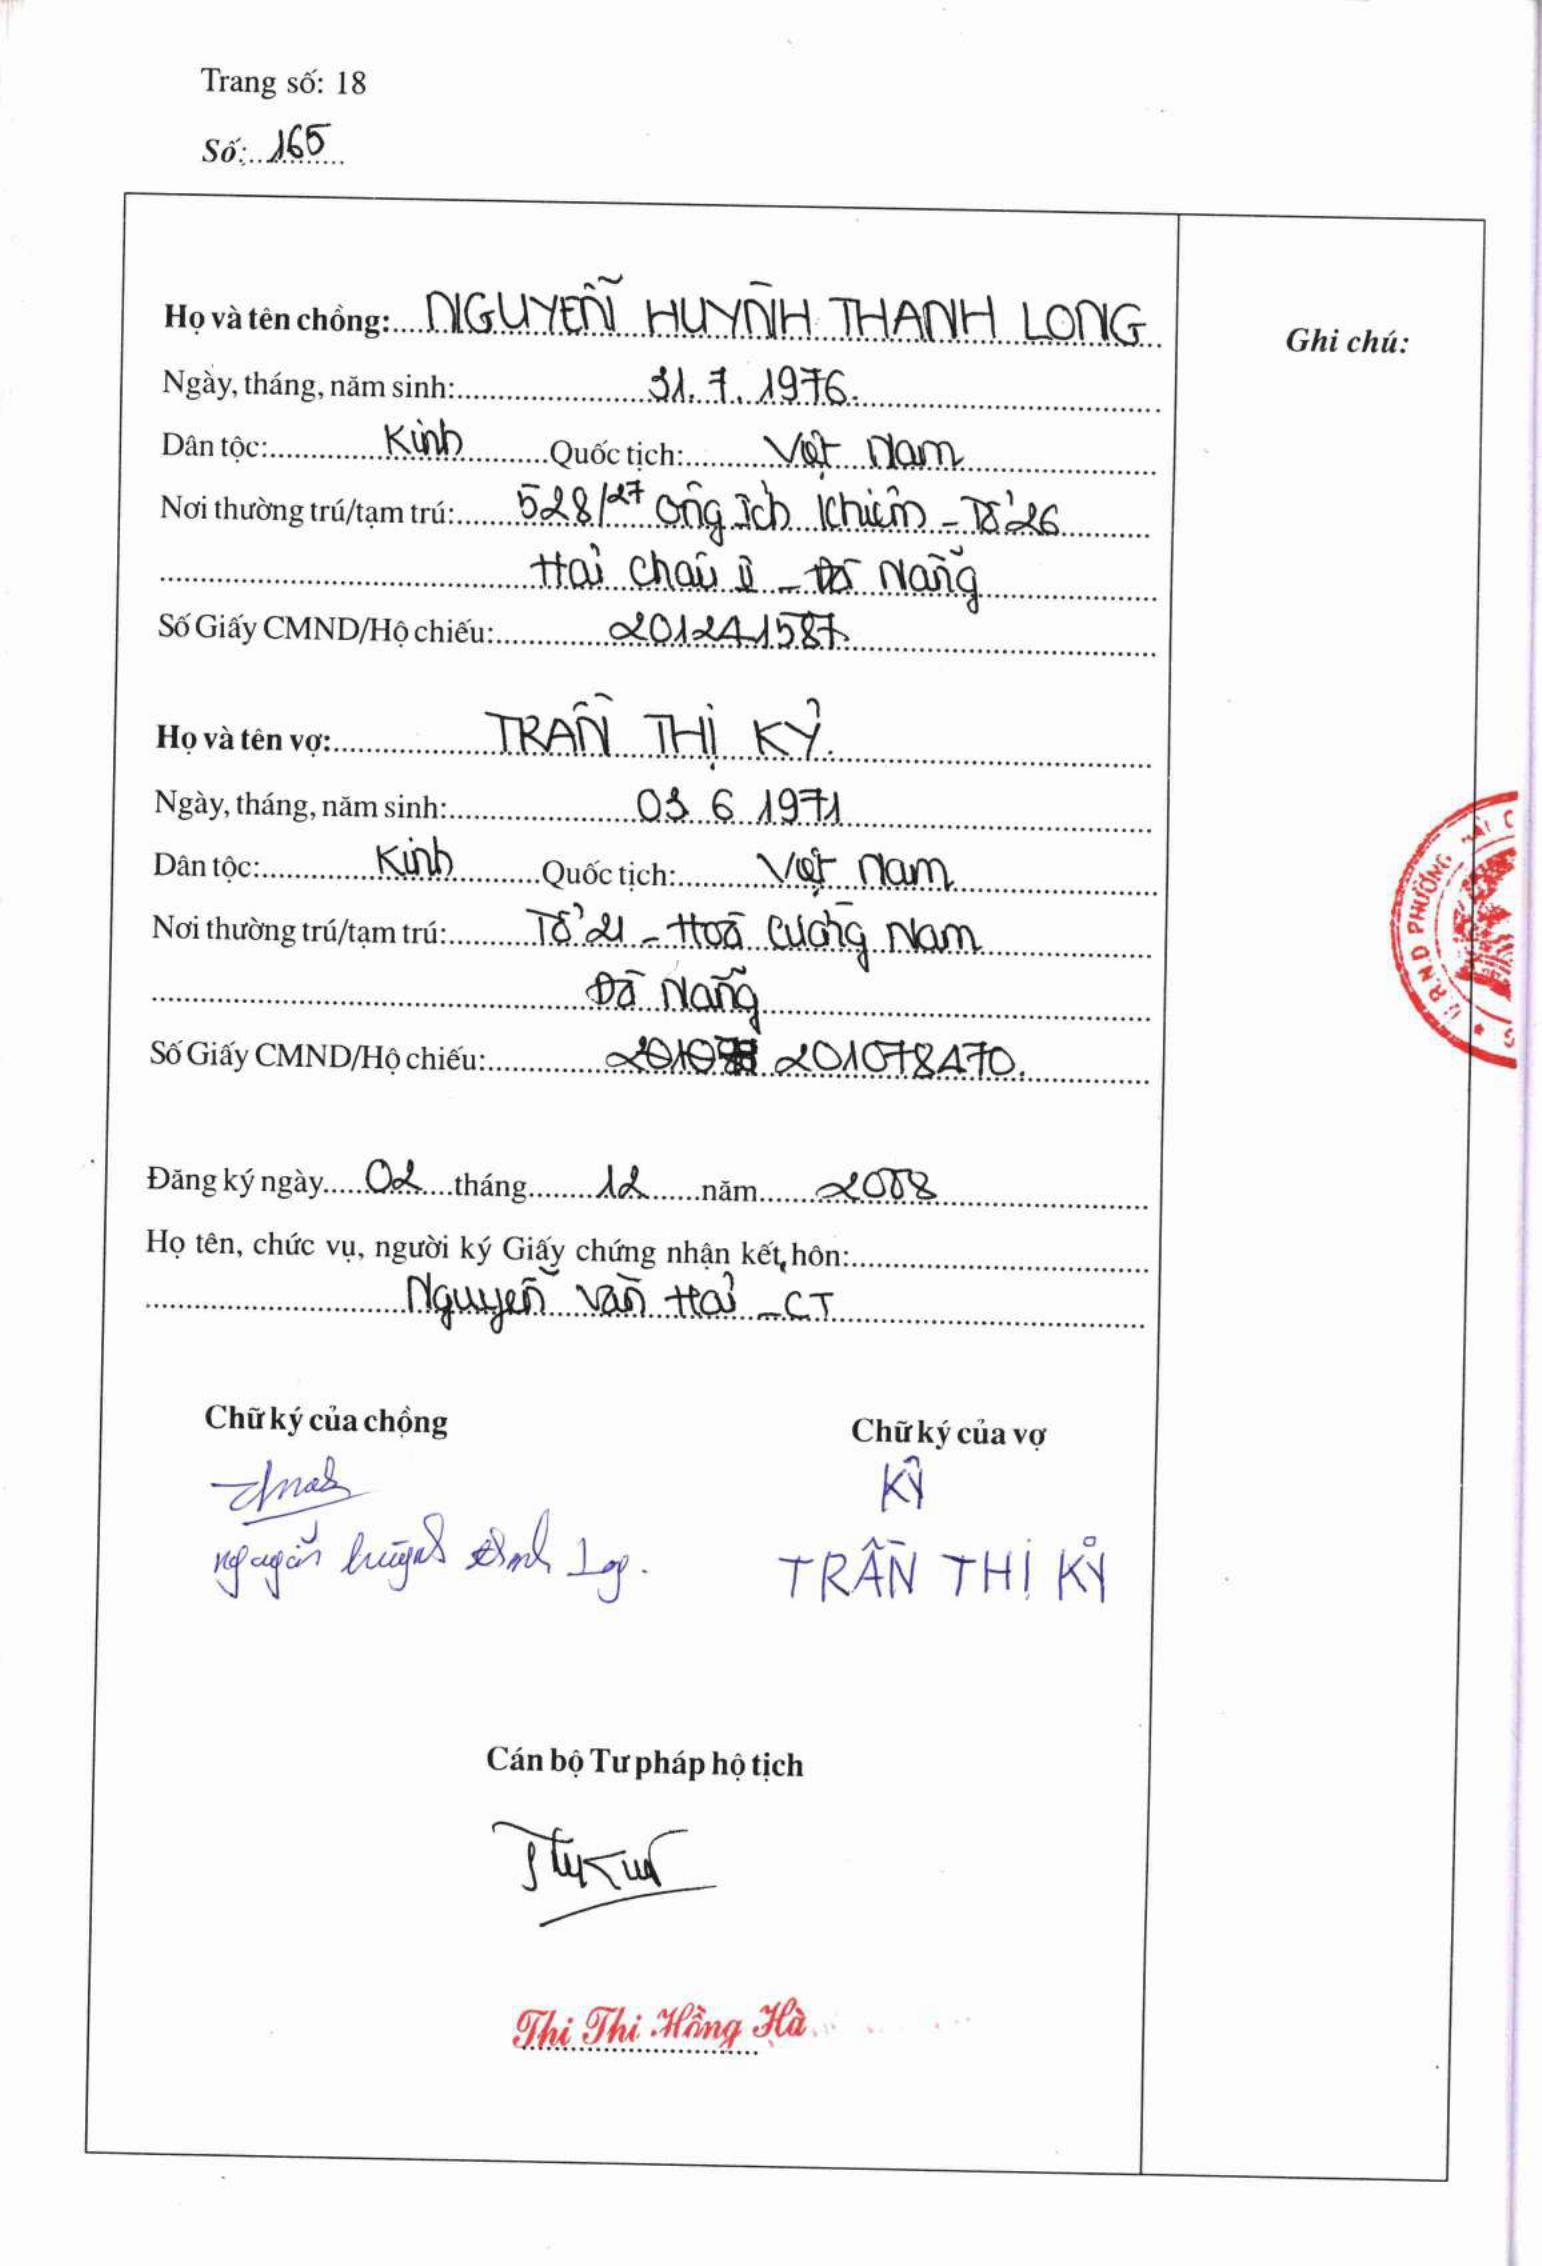 Trang số: 18
Số: 165
Họ và tên chồng: NGUYỄN HUỲNH THANH LONG
Ghi chú:
Ngày, tháng, năm sinh: 31.7.1976.
Dân tộc: Kinh Quốc tịch: Việt Nam
Nơi thường trú/tạm trú: 528/27 Ông Ích Khiêm - Tổ 26
Hải Châu II - Đà Nẵng
Số Giấy CMND/Hộ chiếu: 201241587
Họ và tên vợ: TRẦN THỊ KỶ.
Ngày, tháng, năm sinh: 03 6 1971
Dân tộc: Kinh Quốc tịch: Việt Nam
Nơi thường trú/tạm trú: Tổ 21 - Hoà Cường Nam
Đà Nẵng
Số Giấy CMND/Hộ chiếu: 201078470.
U.B.N.D PHƯỜNG
Đăng ký ngày 02 tháng 12 năm 2008
Họ tên, chức vụ, người ký Giấy chứng nhận kết hôn:
Nguyễn Văn Hải - CT
Chữ ký của chồng Chữ ký của vợ
KỶ
Nguyễn Huỳnh Thanh Long. TRẦN THỊ KỶ
Cán bộ Tư pháp hộ tịch
Thi Thi Hồng Hà